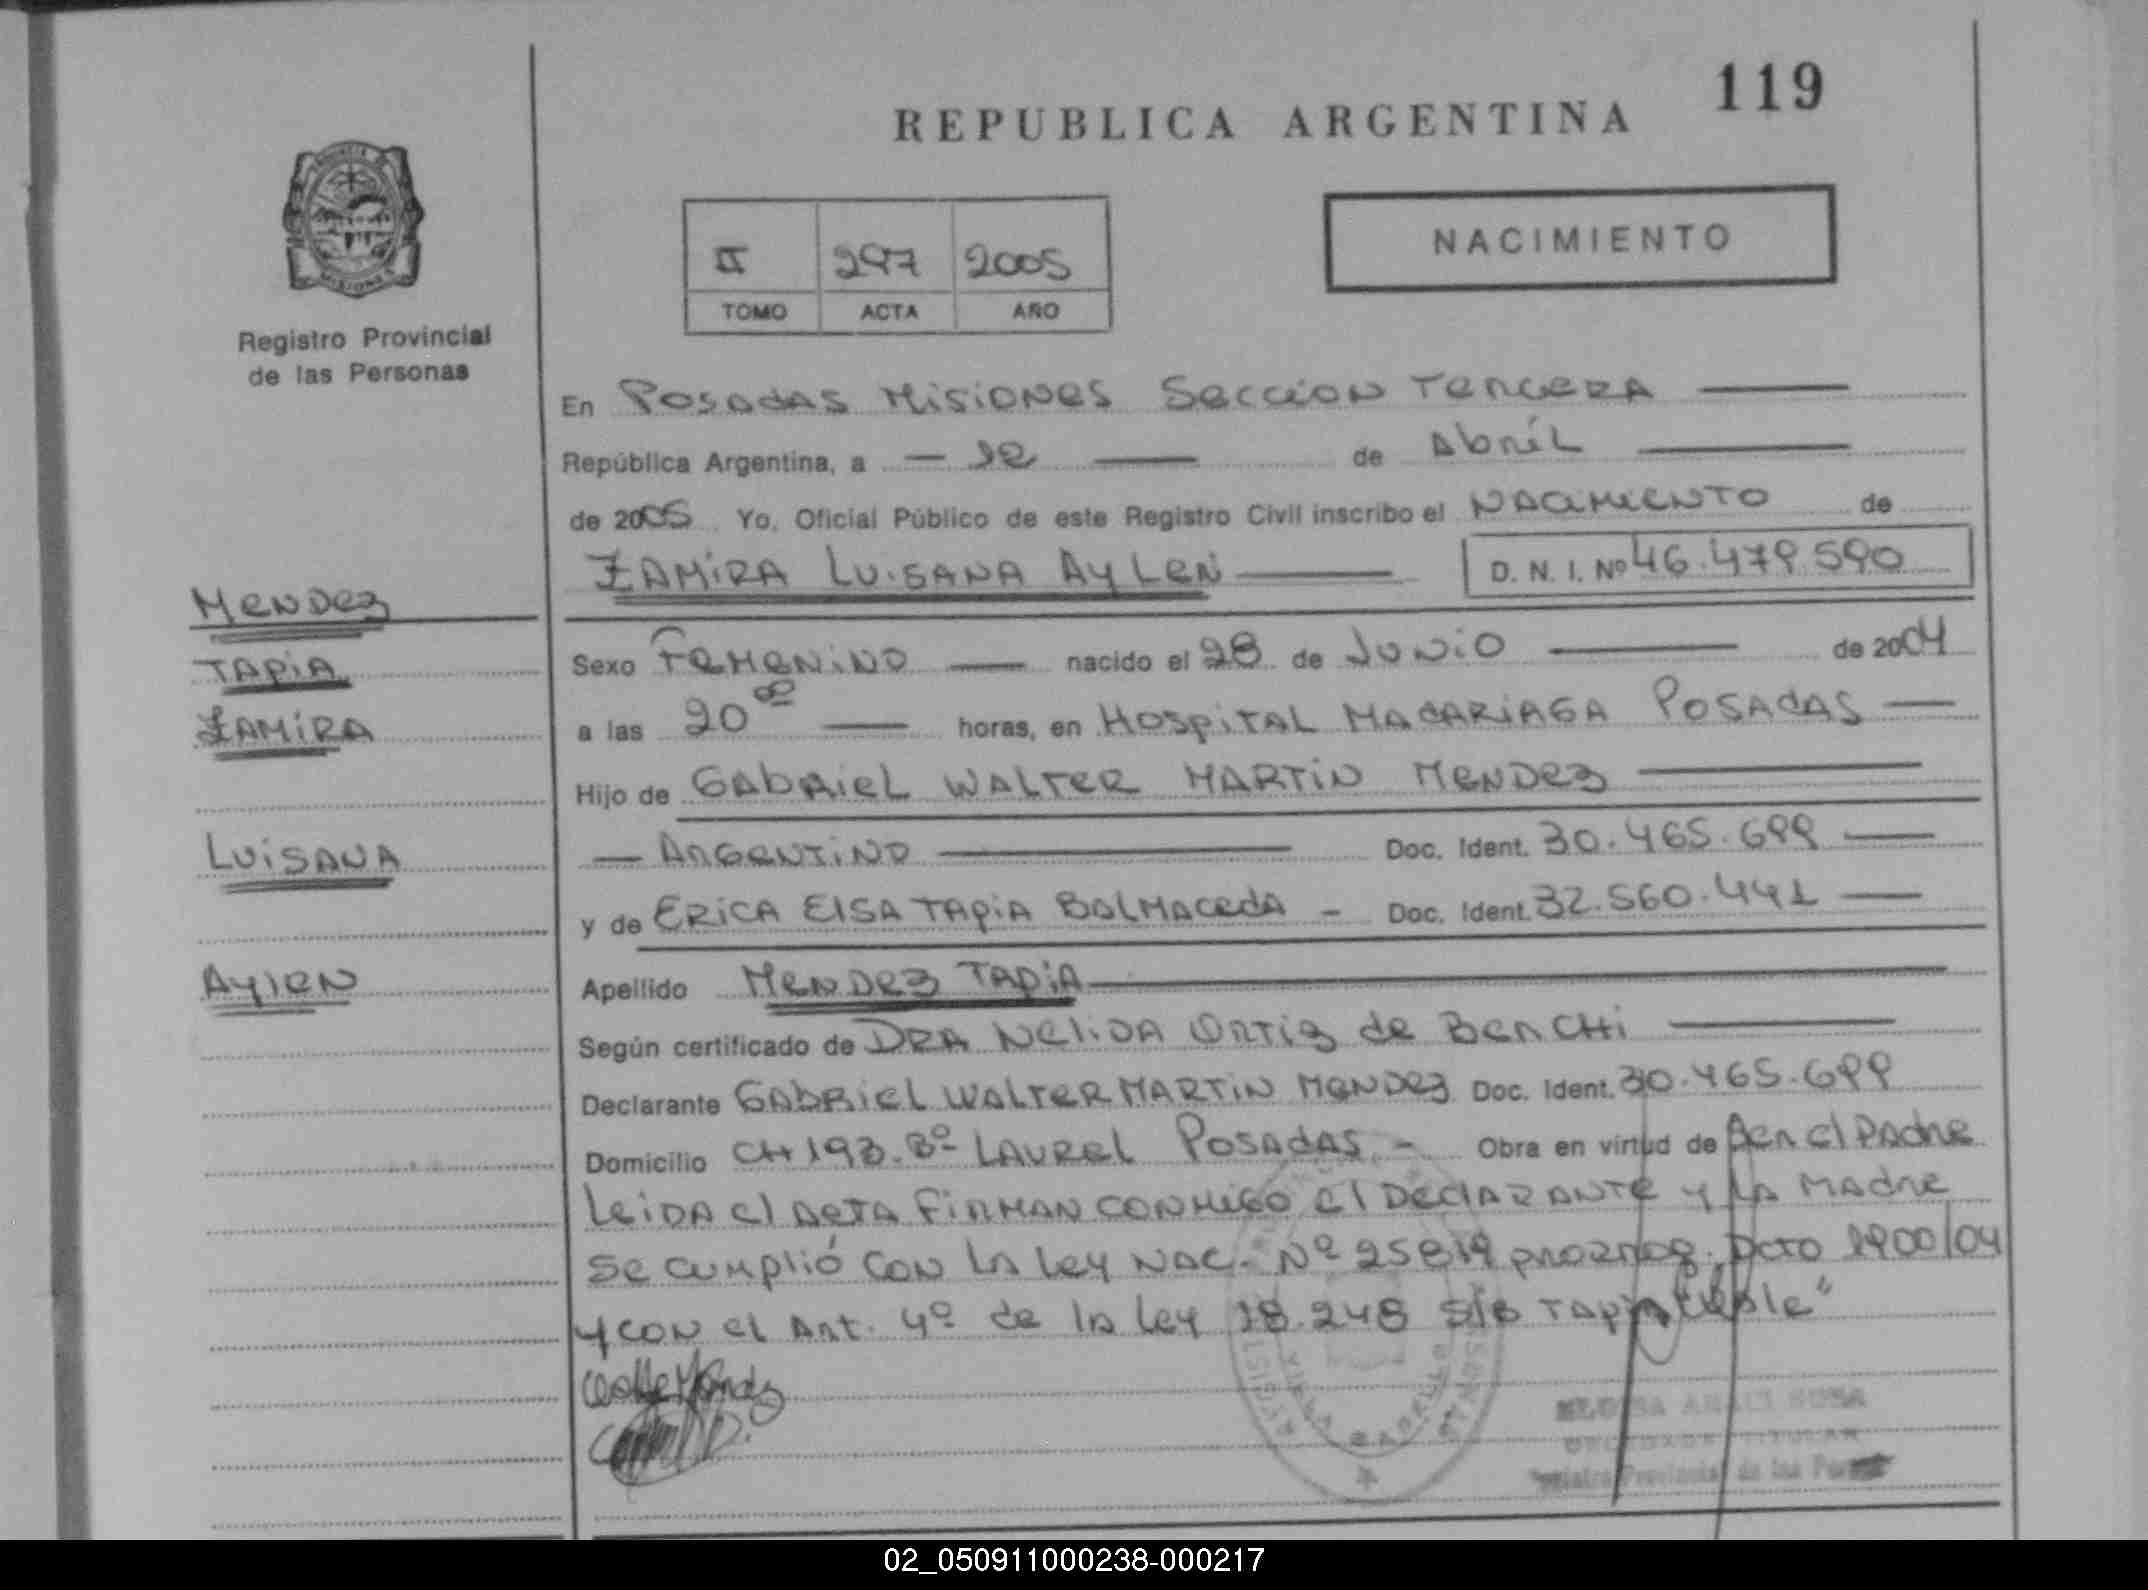 119
REPUBLICA ARGENTINA
NACIMIENTO
II 297 2005
TOMO ACTA AÑO
Registro Provincial
de las Personas
En Posadas Misiones Seccion Tercera
República Argentina, a de Abril
de 2005 Yo, Oficial Público de este Registro Civil inscribo el Nacimiento de
Zamira Luisana Aylen D. N. I. Nº 46.479.590
Mendez
Tapia
Zamira
Luisana
Aylen
Sexo Femenino nacido el 28 de Junio de 2004
a las 20 horas, en Hospital Madariaga Posadas
Hijo de Gabriel Walter Martin Mendez
Argentino Doc. Ident. 30.465.699
y de Erica Elsa Tapia Balmaceda - Doc. Ident. 32.560.441
Apellido Mendez Tapia
Según certificado de Dra Nelida Ortiz de Benchi
Declarante Gabriel Walter Martin Mendez Doc. Ident. 30.465.699
Domicilio CH 193. Bº Laurel Posadas - Obra en virtud de Ser el Padre
Leida el acta firman conmigo el declarante y la madre
se cumplió con la Ley Nac. Nº 25819 Dcto 1900/04
y con el Art. 4º de la Ley 18.248 S/B Tapia
Registro Provincial de las
02_050911000238-000217